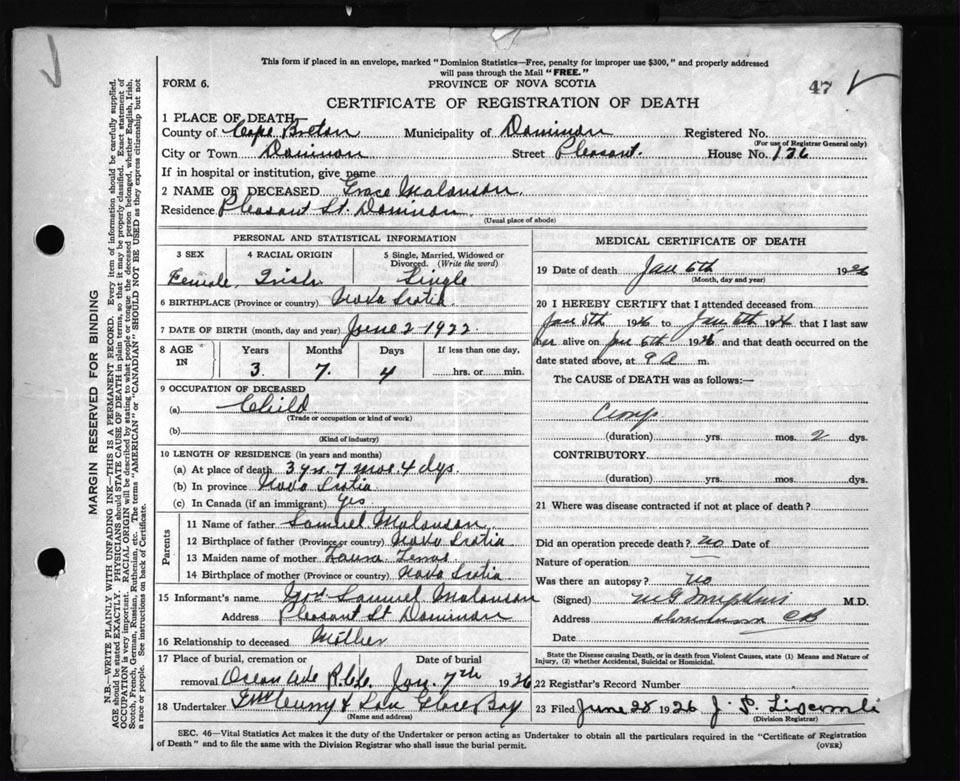 This form if placed in an envelope, marked "Dominion Statistics—Free, penalty for improper use $300," and properly addressed
will pass through the Mail "FREE."
FORM 6. PROVINCE OF NOVA SCOTIA 47
CERTIFICATE OF REGISTRATION OF DEATH
1 PLACE OF DEATH
County of Cape Breton Municipality of Dominion Registered No.
(For use of Registrar General only)
City or Town Dominion Street Pleasant. House No. 126
If in hospital or institution, give name
2 NAME OF DECEASED Grace Malonson.
Residence Pleasant St. Dominion.
(Usual place of abode)
PERSONAL AND STATISTICAL INFORMATION
3 SEX 4 RACIAL ORIGIN 5 Single, Married, Widowed or Divorced. (Write the word)
Female. Irish Single
6 BIRTHPLACE (Province or country) Nova Scotia
7 DATE OF BIRTH (month, day and year) June 2 - 1922
8 AGE IN Years Months Days If less than one day,
3. 7. 4 hrs. or min.
9 OCCUPATION OF DECEASED
(a) Child
(Trade or occupation or kind of work)
(b)
(Kind of industry)
10 LENGTH OF RESIDENCE (in years and months)
(a) At place of death 3 yrs. 7 mos. 4 dys.
(b) In province Nova Scotia
(c) In Canada (if an immigrant) Yes
Parents
11 Name of father Samuel Malonson.
12 Birthplace of father (Province or country) Nova Scotia
13 Maiden name of mother Laura
14 Birthplace of mother (Province or country) Nova Scotia
15 Informant's name Mrs Samuel Malonson
Address Pleasant St Dominion
16 Relationship to deceased Mother
17 Place of burial, cremation or removal Date of burial
Ocean Jan. 7th 1926
18 Undertaker McCurdy & Glace Bay
(Name and address)
MEDICAL CERTIFICATE OF DEATH
19 Date of death Jan 6th 1926
(Month, day and year)
20 I HEREBY CERTIFY that I attended deceased from
Jan 5th 1926 to Jan 6th 1926 that I last saw
her alive on Jan 6th 1926 and that death occurred on the
date stated above, at 9 A m.
The CAUSE OF DEATH was as follows:—
Croup.
(duration) yrs. mos. 2 dys.
CONTRIBUTORY
(duration) yrs. mos. dys.
21 Where was disease contracted if not at place of death?
Did an operation precede death? no Date of
Nature of operation
Was there an autopsy? no
(Signed) M G Tompkins M.D.
Address Dominion CB
Date
State the Disease causing Death, or in death from Violent Causes, state (1) Means and Nature of
Injury, (2) whether Accidental, Suicidal or Homicidal.
22 Registrar's Record Number
23 Filed June 28 1926 J. P.
(Division Registrar)
SEC. 46—Vital Statistics Act makes it the duty of the Undertaker or person acting as Undertaker to obtain all the particulars required in the "Certificate of Registration
of Death" and to file the same with the Division Registrar who shall issue the burial permit. (OVER)
MARGIN RESERVED FOR BINDING
N.B.—WRITE PLAINLY WITH UNFADING INK—THIS IS A PERMANENT RECORD. Every item of information should be carefully supplied.
AGE should be stated EXACTLY. PHYSICIANS should STATE CAUSE OF DEATH in plain terms, so that it may be properly classified. Exact statement of
OCCUPATION is very important. RACIAL ORIGIN will be described by stating to what people or tongue the deceased person belonged, whether English, Irish,
Scotch, French, German, Russian, Ruthenian, etc. The terms "AMERICAN" or "CANADIAN" SHOULD NOT BE USED as they express citizenship but not
a race or people. See instructions on back of Certificate.